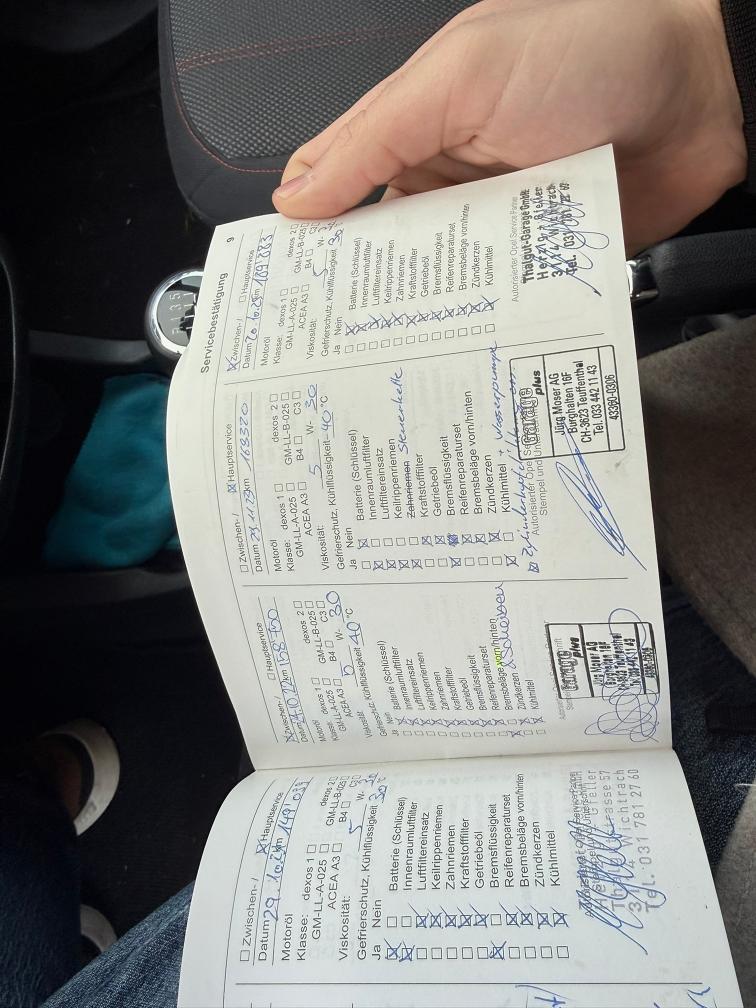 ☐ Zwischen-/ ☒ Hauptservice
Datum 29.10.21 km 149'039
Motoröl
Klasse: dexos 1 ☐ dexos 2 ☐
GM-LL-A-025 ☐ GM-LL-B-025 ☐
ACEA A3 ☐ B4 ☐ C3 ☐
Viskosität: 5 W- 30
Gefrierschutz, Kühlflüssigkeit 30 °C
Ja Nein
☒ ☐ Batterie (Schlüssel)
☒ ☐ Innenraumluftfilter
☐ ☒ Luftfiltereinsatz
☐ ☒ Keilrippenriemen
☐ ☒ Zahnriemen
☐ ☒ Kraftstofffilter
☐ ☒ Getriebeöl
☒ ☐ Bremsflüssigkeit
☐ ☒ Reifenreparaturset
☐ ☒ Bremsbeläge vorn/hinten
☐ ☒ Zündkerzen
☐ ☒ Kühlmittel
Tel. 031 781 27 60
☒ Zwischen-/ ☐ Hauptservice
Datum 24.10.22 km 158 700
Motoröl
Klasse: dexos 1 ☐ dexos 2 ☐
GM-LL-A-025 ☐ GM-LL-B-025 ☐
ACEA A3 ☐ B4 ☐ C3 ☐
Viskosität: 5 W- 30
Gefrierschutz, Kühlflüssigkeit 40 °C
Ja Nein
Batterie (Schlüssel)
Innenraumluftfilter
Luftfiltereinsatz
Keilrippenriemen
Zahnriemen
Kraftstofffilter
Getriebeöl
Bremsflüssigkeit
Reifenreparaturset
Bremsbeläge vorn/hinten & Scheiben
Zündkerzen
Kühlmittel
Garage plus
Jürg Moser AG
Servicebestätigung 9
☐ Zwischen-/ ☒ Hauptservice
Datum 23.11.23 km 163320
Motoröl
Klasse: dexos 1 ☐ dexos 2 ☐
GM-LL-A-025 ☐ GM-LL-B-025 ☐
ACEA A3 ☐ B4 ☐ C3 ☐
Viskosität: 5 W- 30
Gefrierschutz, Kühlflüssigkeit -40 °C
Ja Nein
Batterie (Schlüssel)
Innenraumluftfilter
Luftfiltereinsatz
Keilrippenriemen
Zahnriemen Steuerkette
Kraftstofffilter
Getriebeöl
Bremsflüssigkeit
Reifenreparaturset
Bremsbeläge vorn/hinten
Zündkerzen
Kühlmittel + Wasserpumpe
Autorisierter Opel Service
Stempel und Unter
Garage plus
Jürg Moser AG
Burghalten 16F
CH-3623 Teuffenthal
Tel. 033 442 11 43
43360-0306
☒ Zwischen-/ ☐ Hauptservice
Datum 20.10.25 km 169'883
Motoröl
Klasse: dexos 1 ☐ dexos 2 ☐
GM-LL-A-025 ☐ GM-LL-B-025 ☐
ACEA A3 ☐ B4 ☐ C3 ☐
Viskosität: 5 W- 30
Gefrierschutz, Kühlflüssigkeit 30
Ja Nein
☐ ☒ Batterie (Schlüssel)
☐ ☒ Innenraumluftfilter
☐ ☒ Luftfiltereinsatz
☐ ☒ Keilrippenriemen
☐ ☒ Zahnriemen
☐ ☒ Kraftstofffilter
☐ ☒ Getriebeöl
☐ ☒ Bremsflüssigkeit
☐ ☒ Reifenreparaturset
☐ ☒ Bremsbeläge vorn/hinten
☐ ☒ Zündkerzen
☐ ☒ Kühlmittel
Autorisierter Opel Service Partner
Thalgut-Garage GmbH
3114 Wichtrach
Tel. 031 781 27 60